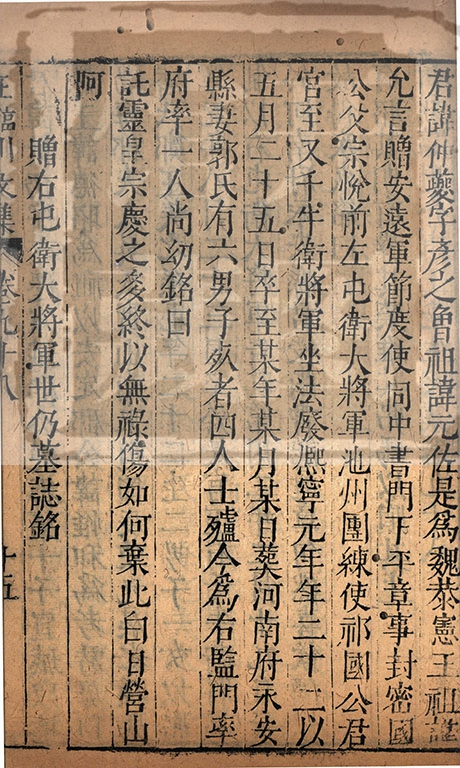 君諱仲夔字彥之曾祖諱元佐是為魏恭憲王祖諱
允言贈安遠軍節度使同中書門下平章事封密國
公父宗悅前左屯衛大將軍池州團練使祁國公君
官至又千牛衛將軍坐法廢熈寧元年年二十二以
五月二十五日卒至某年某月某日葬河南府永安
縣妻郭氏有六男子夾者四人士𤬛今為右監門率
府率一人尚幼銘曰
託靈皇宗慶之多終以無祿傷如何棄此白日營山
阿
贈右屯衛大將軍世仍墓誌銘
王臨川文集 卷九十八 十五